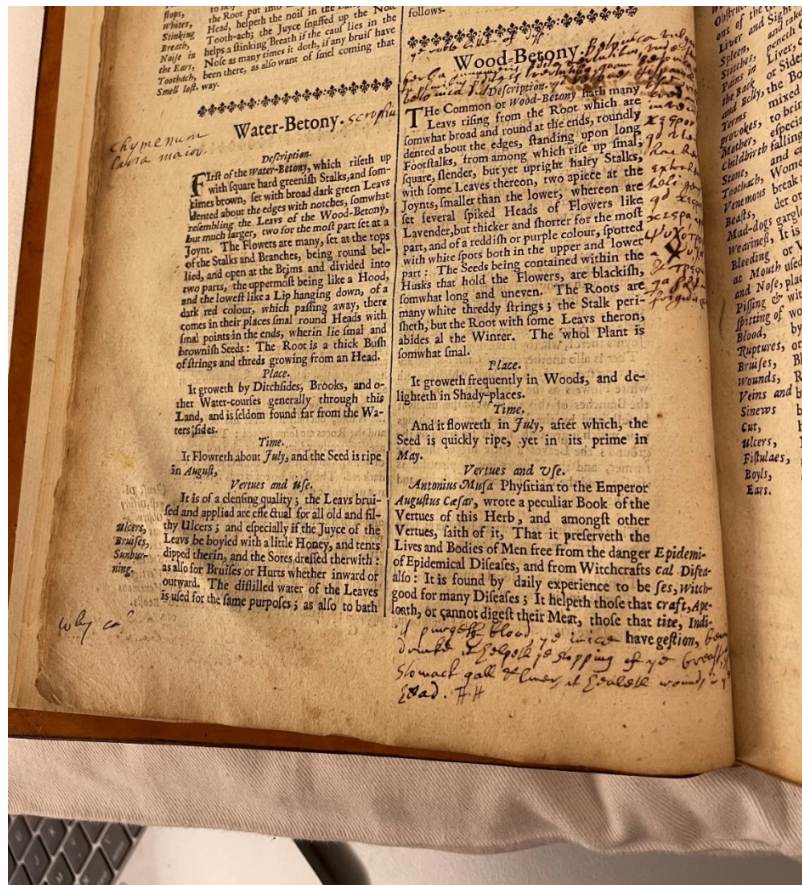 flops,
Whites,
Stinking
Breath,
Noise in
the Ears,
Toothach,
Smell lost.
the Root put into
Head, helpeth the nois in the
Tooth-ach; the Juyce snuffed up the Nose
helps a stinking Breath if the cause lies in the
Nose as many times it doth, if any bruis have
been there, as also want of smel coming that
way.
Water-Betony.
chymenum
Description.
FIrst of the Water-Betony, which riseth up
with square hard greenish Stalks, and som-
times brown, set with broad dark green Leavs
dented about the edges with notches, somwhat
resembling the Leavs of the Wood-Betony,
but much larger, two for the most part set at a
Joynt. The Flowers are many, set at the tops
of the Stalks and Branches, being round bel-
lied, and open at the Brims and divided into
two parts, the uppermost being like a Hood,
and the lowest like a Lip hanging down, of a
dark red colour, which passing away, there
comes in their places smal round Heads with
smal points in the ends, wherin lie smal and
brownish Seeds: The Root is a thick Bush
of strings and threds growing from an Head.
Place.
It groweth by Ditchsides, Brooks, and o-
ther Water-courses generally through this
Land, and is seldom found far from the Wa-
ters sides.
Time.
It Flowreth about July, and the Seed is ripe
in August,
Vertues and use.
It is of a clensing quality; the Leavs brui-
sed and applied are effectual for all old and fil-
thy Ulcers; and especially if the Juyce of the
Leavs be boyled with a little Honey, and tents
dipped therin, and the Sores dressed therwith:
as also for Bruises or Hurts whether inward or
outward. The distilled water of the Leaves
is used for the same purposes; as also to bath
ulcers,
Bruises,
Sunbur-
ning,
follows.
Wood-Betony.
Description.
THe Common or Wood-Betony hath many
Leavs rising from the Root which are
somwhat broad and round at the ends, roundly
dented about the edges, standing upon long
Footstalks, from among which rise up smal,
square, slender, but yet upright hairy Stalks,
with some Leaves thereon, two apiece at the
Joynts, smaller than the lower, whereon are
set several spiked Heads of Flowers like
Lavender, but thicker and shorter for the most
part, and of a reddish or purple colour, spotted
with white spots both in the upper and lower
part: The Seeds being contained within the
Husks that hold the Flowers, are blackish,
somwhat long and uneven. The Roots are
many white threddy strings; the Stalk peri-
sheth, but the Root with some Leavs theron,
abides al the Winter. The whol Plant is
somwhat smal.
Place.
It groweth frequently in Woods, and de-
lighteth in Shady-places.
Time.
And it flowreth in July, after which, the
Seed is quickly ripe, yet in its prime in
May.
Vertues and Use.
Antonius Musa Physitian to the Emperor
Augustus Cæsar, wrote a peculiar Book of the
Vertues of this Herb, and amongst other
Vertues, saith of it, That it preserveth the
Lives and Bodies of Men free from the danger
of Epidemical Diseases, and from Witchcrafts
also: It is found by daily experience to be
good for many Diseases; It helpeth those that
loath, or cannot digest their Meat, those that
have
Epidemi-
cal Disea-
ses, Witch-
craft, Ape-
tite, Indi-
gestion,
it purgeth blood,
stopping of ye breast
stomach gall & liver, it healeth wounds
Head.
Liver and
Spleen,
Stitches,
Pains in
the Back
and Belly,
Terms
provokes,
Mother,
Childbirth
Toothach,
Venemous
Beasts,
Mad-dogs
Weariness,
Bleeding
at Mouth
and Nose,
Pissing &
spitting of
Blood,
Ruptures,
Bruises,
Wounds,
Veins and
Sinews
Cut,
ulcers,
Fistulaes,
Boyls,
Ears.